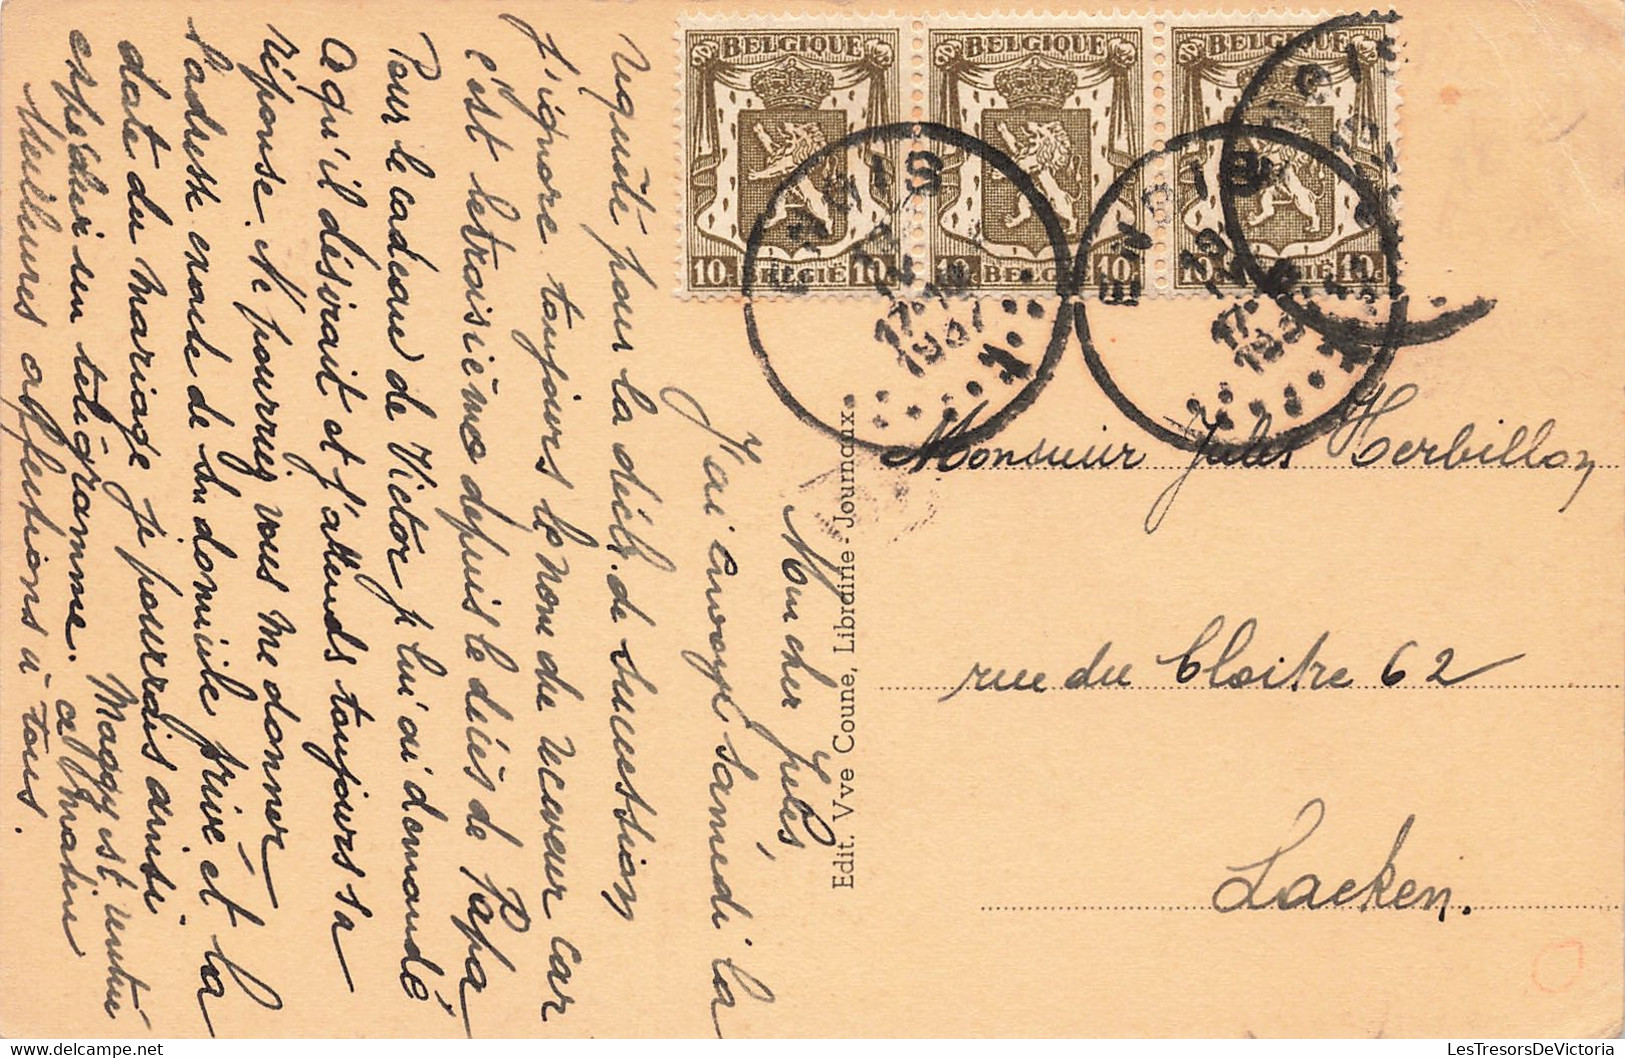 BELGIQUE BELGIQUE BELGIQUE
10c BELGIË 10c
10c BELGIË 10c
10c BELGIË 10c
ENGIS
17-18
1937
ENGIS
17-
193
ENGIS
Mon cher Jules,
J'ai envoyé samedi la
requête pour la décl. de succession
j'ignore toujours le nom du receveur car
c'est le troisième depuis le décès de Papa
Pour le cadeau de Victor je lui ai demandé
ce qu'il désirait et j'attends toujours sa
réponse. Ne pourriez vous me donner
l'adresse exacte de son domicile privé et la
date du mariage je pourrais ainsi
expédier un télégramme. Maggy est rentrée
ce matin
Meilleures affections à tous.
Edit. Vve Coune, Librairie - Journaux
Monsieur Jules Herbillon
rue du Cloitre 62
Laeken.
LesTresorsDeVictoria